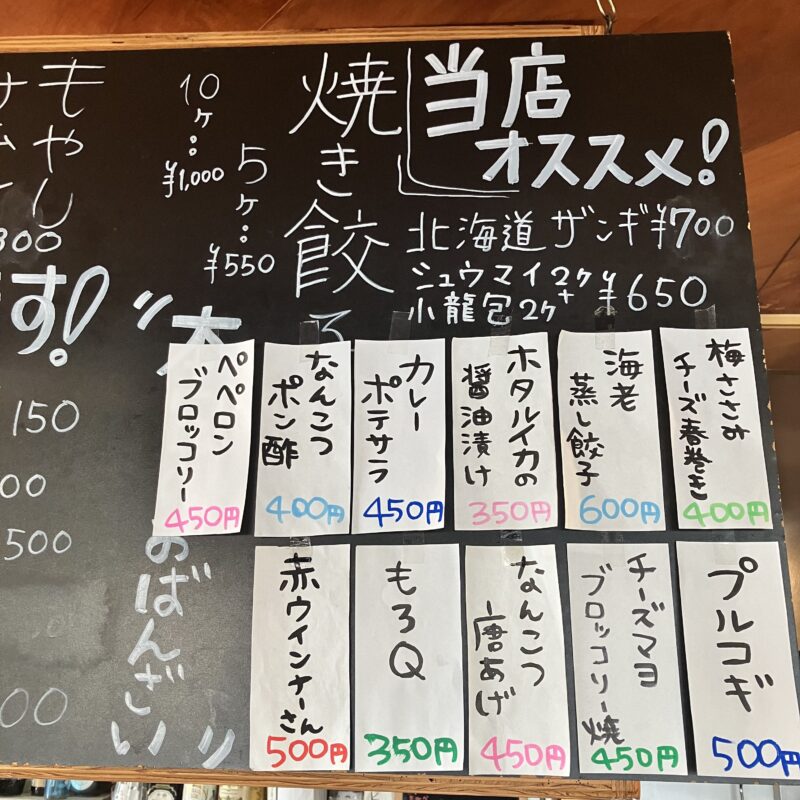 当店
オススメ!
北海道ザンギ ¥700
シュウマイ2ケ+
小龍包2ケ
¥650
焼き餃子
10ケ:¥1,000
5ケ:¥550
もやし
300
す!
150
00
500
00
のばんざい
梅ささみ
チーズ春巻き
400円
海老
蒸し餃子
600円
ホタルイカの
醤油漬け
350円
カレー
ポテサラ
450円
なんこつ
ポン酢
400円
ペペロン
ブロッコリー
450円
プルコギ
500円
チーズマヨ
ブロッコリー焼
450円
なんこつ
唐あげ
450円
もろQ
350円
赤ウインナーさん
500円